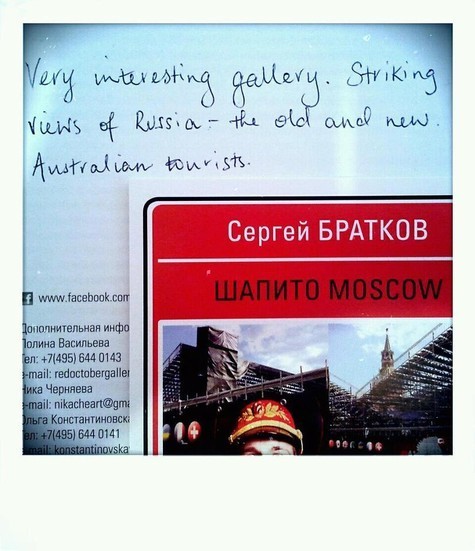 Very interesting gallery. Striking
views of Russia - the old and new.
Australian tourists.
Сергей БРАТКОВ
ШАПИТО MOSCOW
www.facebook.com
Дополнительная инфо
Полина Васильева
Тел: +7(495) 644 0143
e-mail: redoctobergaller
Ника Черняева
e-mail: nikacheart@gma
Ольга Константиновска
Тел: +7(495) 644 0141
e-mail: konstantinovska